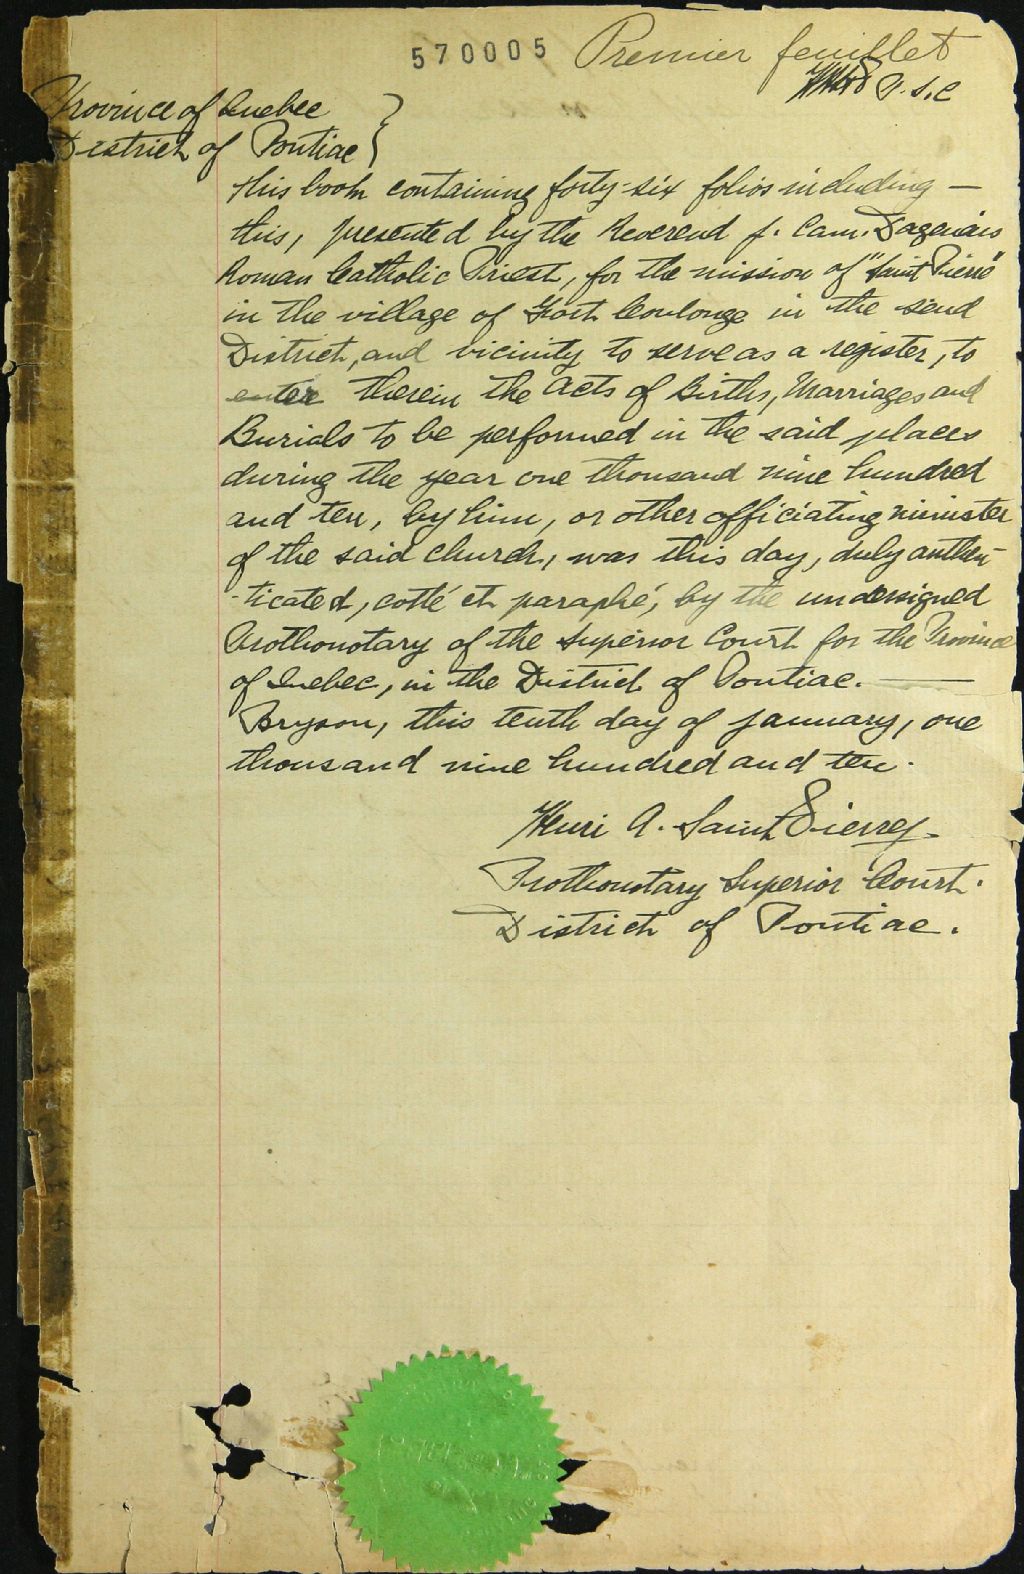 570005 Premier feuillet
P.S.C
Province of Quebec
District of Pontiac
This book containing forty-six folios including —
this, presented by the Reverend J. Cam. Dagenais
Roman Catholic Priest, for the mission of "Saint Pierre"
in the village of Fort Coulonge in the said
District, and vicinity to serve as a register, to
enter therein the Acts of Births, Marriages and
Burials to be performed in the said places
during the year one thousand nine hundred
and ten, by him, or other officiating minister
of the said church, was this day, duly authen-
-ticated, cotté et paraphé, by the undersigned
Prothonotary of the Superior Court for the Province
of Quebec, in the District of Pontiac. —
Bryson, this tenth day of January, one
thousand nine hundred and ten.
Henri A. Saint Pierre
Prothonotary Superior Court.
District of Pontiac.